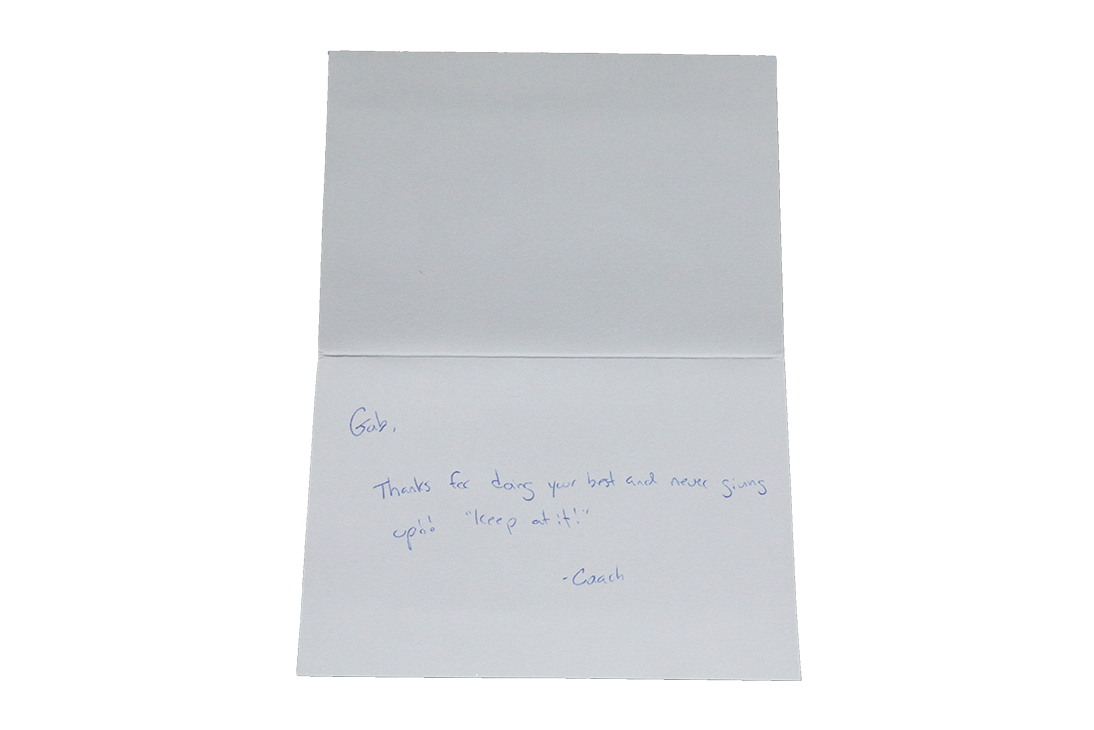 Gab,
Thanks for doing your best and never giving
up!! "Keep at it!"
-Coach